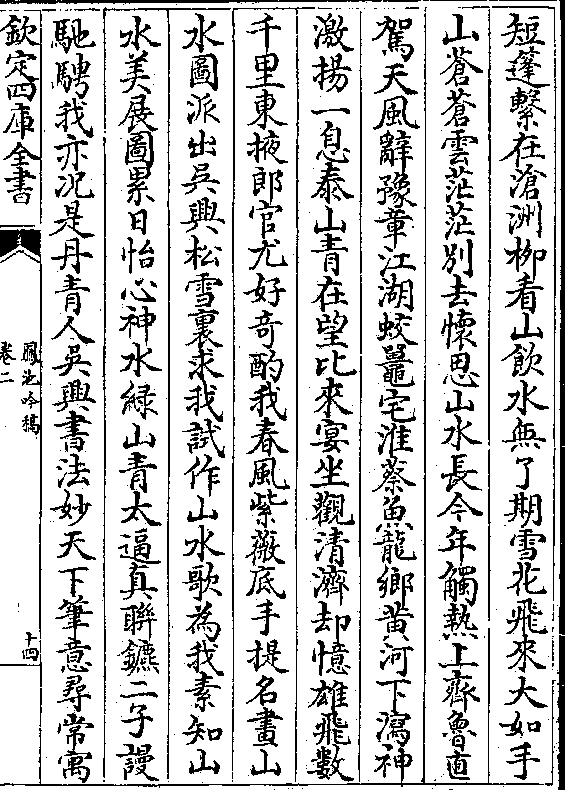 短蓬繫在滄洲柳看山飲水無了期雪花飛來大如手
山蒼蒼雲茫茫別去懷思山水長今年觸熱上齊魯直
駕天風辭豫章江湖蛟鼉宅淮蔡魚龍鄉黄河下瀉神
激揚一息泰山青在望比來宴坐觀清濟却憶雄飛數
千里東掖郎官尤好奇酌我春風紫薇底手提名畫山
水圖派出吳興松雪裏求我試作山水歌為我素知山
水美展圖累日怡心神水緑山青太逼真聯鑣二子謾
馳騁我亦况是丹青人吳興書法妙天下筆意尋常寓
欽定四庫全書
鳳池吟稿
卷二
十四